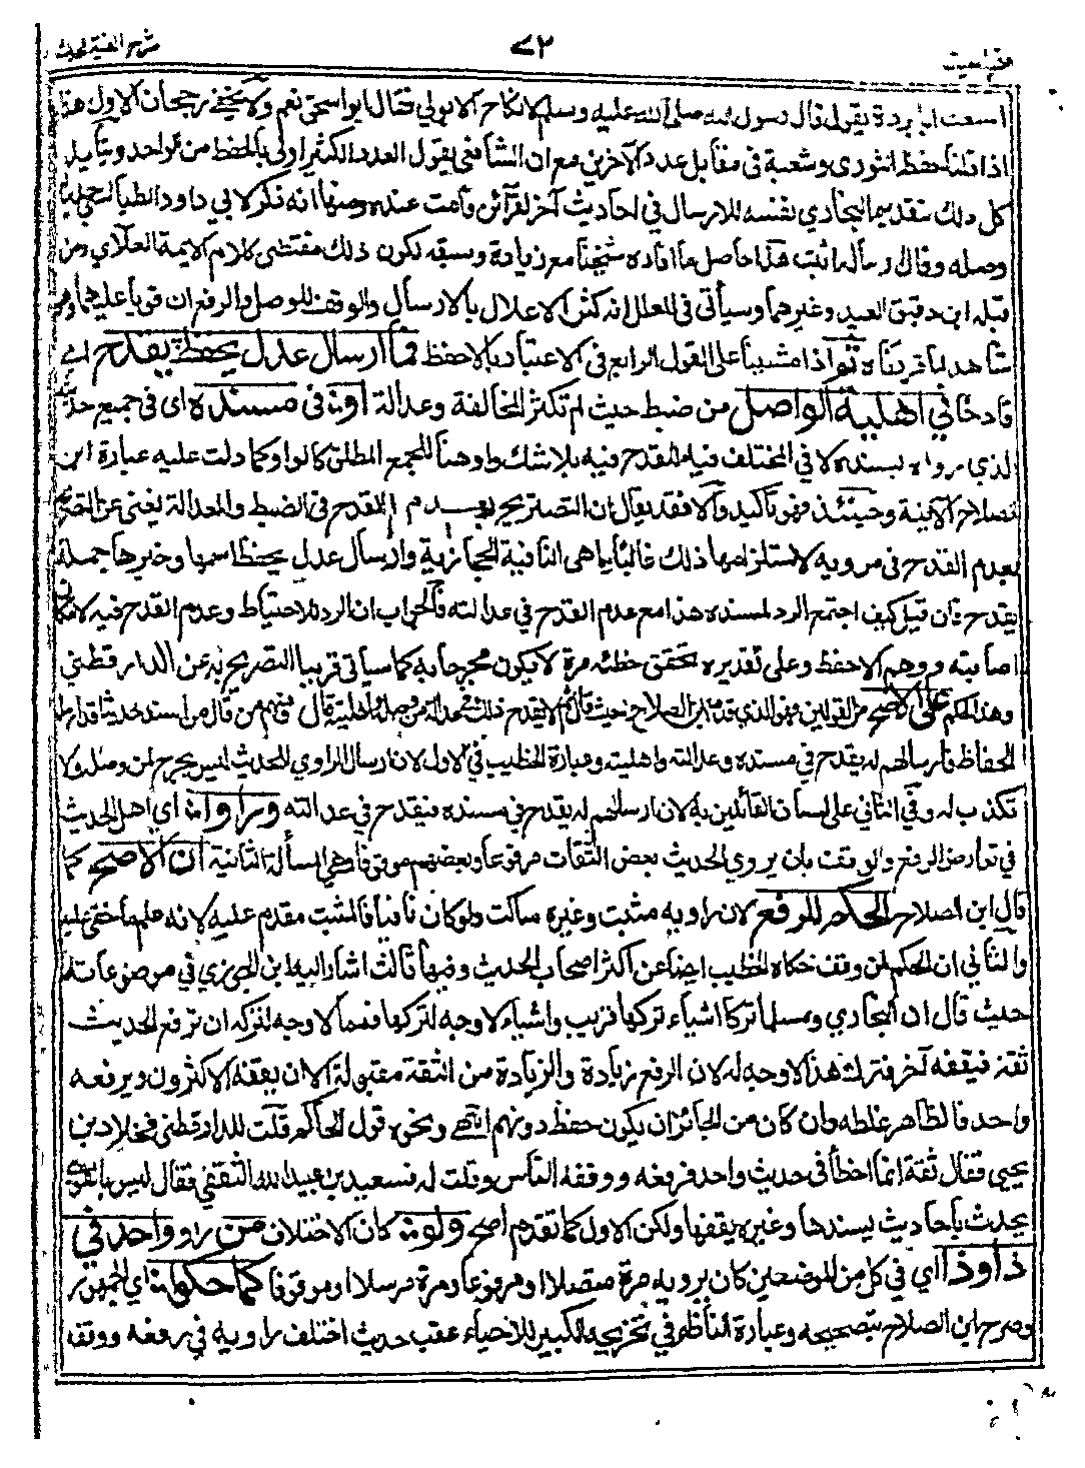 شرح الفية الحديث
٧٢
فتح المغيث
اسمعت ابا بردة يقول قال رسول الله صلى الله عليه وسلم لا نكاح الا بولي فقال ابو اسحق نعم ولا يخفى رجحان الاول هذا
اذا قلنا حفظ الثوري وشعبة في مقابل عدد الآخرين مع ان الشافعي يقول العدد الكثير اولى بالحفظ من الواحد ويتأيد
كل ذلك بتقديم البخاري نفسه للارسال في احاديث آخر لقرائن قامت عنده ومنها انه ذكر لابي داود الطيالسي حديثا
وصله وقال ارساله اثبت هذا حاصل ما افاده شيخنا مع زيادة وسبقه لكون ذلك مقتضى كلام الايمة العلائي ومن
قبله ابن دقيق العيد وغيرهما وسيأتي في المعلل انه كثر الاعلال بالارسال والوقف للوصل والرفع ان قويا عليهما وهو
شاهد لما قررناه ثم اذا مشينا على القول الرابع في الاعتبار بالاحفظ فما ارسال عدل يحفظ يقدح اي
قادحا في اهلية الواصل من ضبط حيث لم تكثر المخالفة وعدالة او في مسنده اي في جميع حديثه
الذي رواه بسنده لا في المختلف فيه للقدح فيه بلا شك واو هنا للجمع المطلق كالواو كما دلت عليه عبارة ابن
الصلاح الآتية وحينئذ فهو تأكيد والا فقد يقال ان التصريح بعدم القدح في الضبط والعدالة يغني عن التصريح
بعدم القدح في مرويه لاستلزامها ذلك غالبا وما هي النافية الحجازية وارسال عدل يحفظ اسمها وخبرها جملة
يقدح فان قيل كيف اجتمع الرد لمسنده هذا مع عدم القدح في عدالته فالجواب ان الرد للاحتياط وعدم القدح فيه لامكان
اصابته ووهم الاحفظ وعلى تقديره تحقق خطئه مرة لا يكون مجرحا به كما سيأتي قريبا التصريح به عن الدارقطني
وهذا الحكم على الاصح من القولين وهو الذي قدمه ابن الصلاح حيث قال ثم لا يقدح ذلك في عدالة من وصله واهليته قال فمنهم من قال من اسند حديثا قد ارسله
الحفاظ فارسالهم له يقدح في مسنده وعدالته واهليته وعبارة الخطيب في الاول لان ارسال الراوي للحديث ليس بجرح لمن وصله ولا
تكذيب له وفي الثاني على لسان القائلين به لان ارسالهم له يقدح في مسنده فيقدح في عدالته ورأوا اي اهل الحديث
في تعارض الرفع والوقف بان يروي الحديث بعض الثقات مرفوعا وبعضهم موقوفا وهي المسألة الثانية ان الاصح كما
قال ابن الصلاح الحكم للرفع لان راويه مثبت وغيره ساكت ولو كان نافيا فالمثبت مقدم عليه لانه علم ما خفي عليه
والثاني ان الحكم لمن وقف حكاه الخطيب ايضا عن اكثر اصحاب الحديث وفيها ثالث اشار اليه ابن الجوزي في موضوعاته
حيث قال ان البخاري ومسلما تركا اشياء تركها قريب واشياء لا وجه لتركها فمما لا وجه لتركه ان يرفع الحديث
ثقة فيقفه آخر فترك هذا لا وجه له لان الرفع زيادة والزيادة من الثقة مقبولة الا ان يقفه الاكثرون ويرفعه
واحد فالظاهر غلطه وان كان من الجائز ان يكون حفظ دونهم انتهى ونحوه قول الحاكم قلت للدارقطني فخلاد بن
يحيى فقال ثقة انما اخطأ في حديث واحد فرفعه ووقفه الناس وقلت له فسعيد بن عبيد الله الثقفي فقال ليس بالقوي
يحدث باحاديث يسندها وغيره يقفها ولكن الاول كما تقدم اصح ولو كان الاختلاف من راو واحد في
ذا وذا اي في كل من الموضعين كان يرويه مرة متصلا او مرفوعا ومرة مرسلا او موقوفا كما حكوا اي الجمهور
وصرح ابن الصلاح بتصحيحه وعبارة الناظم في تخريجه الكبير للاحياء عقب حديث اختلف راويه في رفعه ووقفه